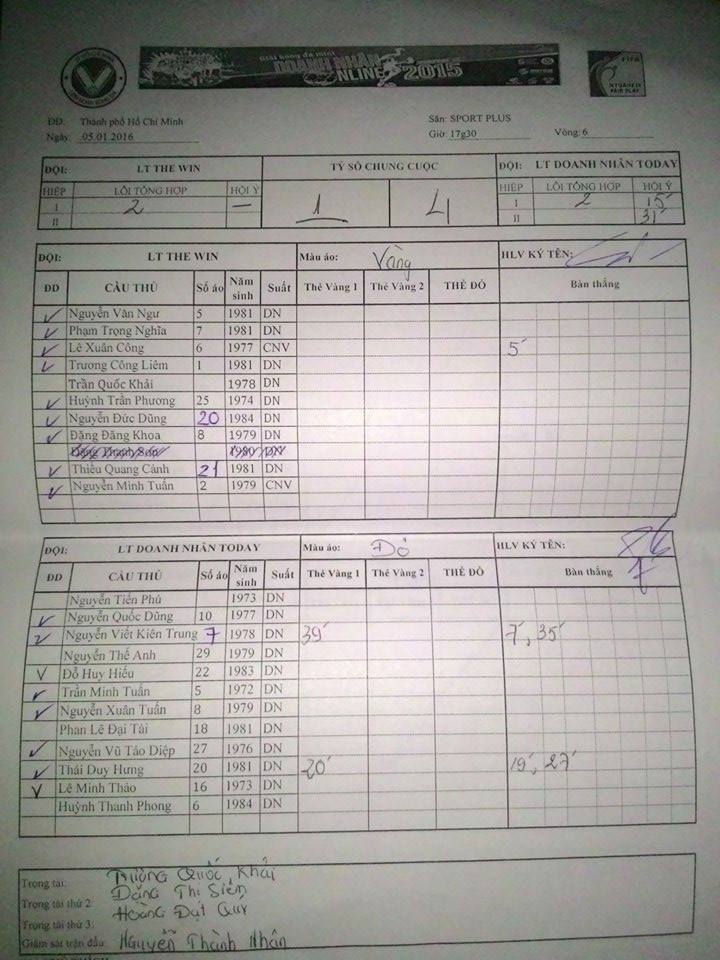 Giải bóng đá mini
DOANH NHÂN
ONLINE 2015
FIFA
MY GAME IS
FAIR PLAY
ĐĐ: Thành phố Hồ Chí Minh Sân: SPORT PLUS
Ngày: 05.01.2016 Giờ: 17g30 Vòng: 6
ĐỘI: LT THE WIN TỶ SỐ CHUNG CUỘC ĐỘI: LT DOANH NHÂN TODAY
HIỆP LỖI TỔNG HỢP HỘI Ý 1 4 HIỆP LỖI TỔNG HỢP HỘI Ý
I 2 – I 2 15'
II II 31'
ĐỘI: LT THE WIN Màu áo: Vàng HLV KÝ TÊN:
ĐD CẦU THỦ Số áo Năm sinh Suất Thẻ Vàng 1 Thẻ Vàng 2 THẺ ĐỎ Bàn thắng
✓ Nguyễn Văn Ngư 5 1981 DN
✓ Phạm Trọng Nghĩa 7 1981 DN
✓ Lê Xuân Công 6 1977 CNV 5'
✓ Trương Công Liêm 1 1981 DN
Trần Quốc Khải 1978 DN
✓ Huỳnh Trần Phương 25 1974 DN
✓ Nguyễn Đức Dũng 20 1984 DN
✓ Đặng Đăng Khoa 8 1979 DN
Đặng Thanh Sơn 1980 DN
✓ Thiều Quang Cảnh 21 1981 DN
✓ Nguyễn Minh Tuấn 2 1979 CNV
ĐỘI: LT DOANH NHÂN TODAY Màu áo: Đỏ HLV KÝ TÊN:
ĐD CẦU THỦ Số áo Năm sinh Suất Thẻ Vàng 1 Thẻ Vàng 2 THẺ ĐỎ Bàn thắng
Nguyễn Tiến Phú 1973 DN
✓ Nguyễn Quốc Dũng 10 1977 DN
✓ Nguyễn Viết Kiên Trung 7 1978 DN 39' 7', 35'
Nguyễn Thế Anh 29 1979 DN
✓ Đỗ Huy Hiếu 22 1983 DN
✓ Trần Minh Tuấn 5 1972 DN
✓ Nguyễn Xuân Tuấn 8 1979 DN
Phan Lê Đại Tài 18 1981 DN
✓ Nguyễn Vũ Táo Diệp 27 1976 DN
✓ Thái Duy Hưng 20 1981 DN 20' 19', 27'
✓ Lê Minh Thảo 16 1973 DN
Huỳnh Thanh Phong 6 1984 DN
Trọng tài: Trương Quốc Khải
Trọng tài thứ 2: Đặng Thị Siêm
Trọng tài thứ 3: Hoàng Đạt Quý
Giám sát trận đấu: Nguyễn Thành Nhân